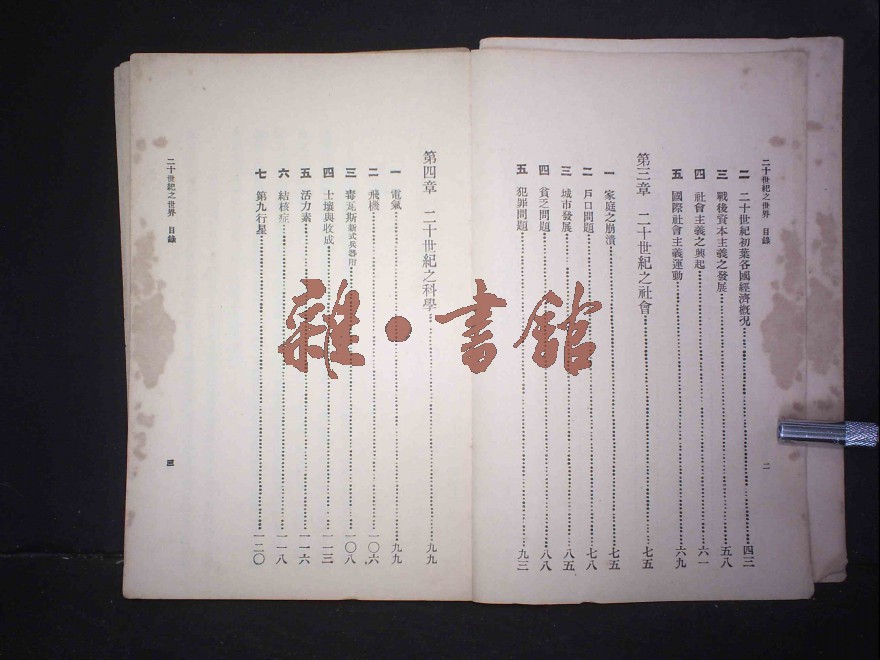 二十世紀之世界 目錄
二 二十世紀初葉各國經濟概況 四三
三 戰後資本主義之發展 五八
四 社會主義之興起 六一
五 國際社會主義運動 六九
第三章 二十世紀之社會 七五
一 家庭之崩潰 七五
二 戶口問題 七八
三 城市發展 八五
四 貧乏問題 八八
五 犯罪問題 九三
二
二十世紀之世界 目錄
第四章 二十世紀之科學 九九
一 電氣 九九
二 飛機 一〇六
三 毒瓦斯新式兵器用 一〇八
四 土壤與收成 一一三
五 活力素 一一六
六 結核症 一一八
七 第九行星 一二〇
三
雜·書館